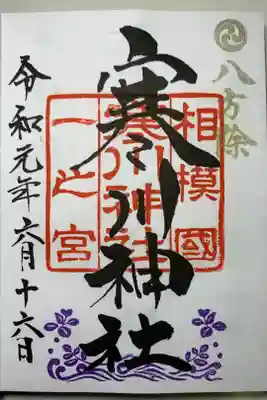 八方除
相模國
寒川神社
寒川神社
一之宮
令和元年六月十六日